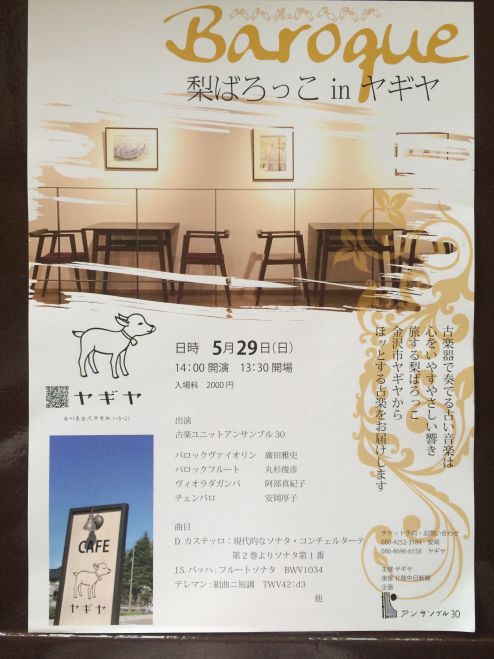 Baroque
梨ばろっこ in ヤギヤ
古楽器で奏でる古い音楽は
心をいやすやさしい響き
旅する梨ばろっこ
金沢市ヤギヤから
ホッとする古楽をお届けします
日時 5月29日(日)
14:00 開演 13:30 開場
入場料 2000円
ヤギヤ
出演
古楽ユニットアンサンブル30
バロックヴァイオリン 廣田雅史
バロックフルート 丸杉俊彦
ヴィオラダガンバ 阿部真紀子
チェンバロ 安岡厚子
曲目
D. カステッロ:現代的なソナタ・コンチェルターテ
第2巻よりソナタ第1番
J.S. バッハ:フルートソナタ BWV1034
テレマン:組曲ニ短調 TWV42:d3
他
CAFE
ヤギヤ
チケット予約・お問い合わせ
080-4252-3184 安岡
080-8696-6158 ヤギヤ
主催 ヤギヤ
後援 北陸中日新聞
企画
アンサンブル30